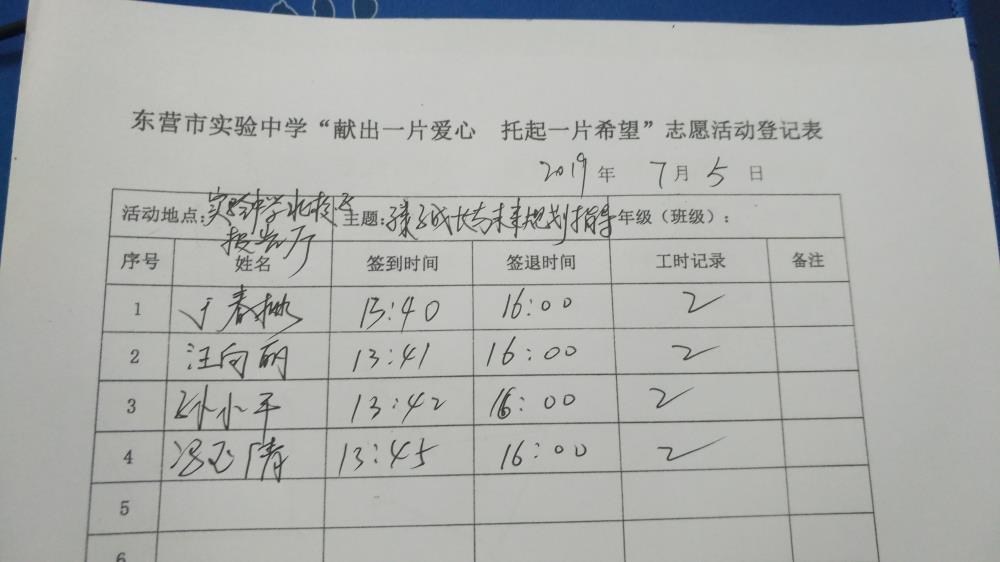 东营市实验中学“献出一片爱心 托起一片希望”志愿活动登记表
2019年 7月5日
活动地点:实验中学北校区报告厅 主题:孩子成长与未来规划指导 年级(班级):
序号 姓名 签到时间 签退时间 工时记录 备注
1 于春 13:40 16:00 2
2 汪向丽 13:41 16:00 2
3 孙小平 13:42 16:00 2
4 冯玉倩 13:45 16:00 2
5
6